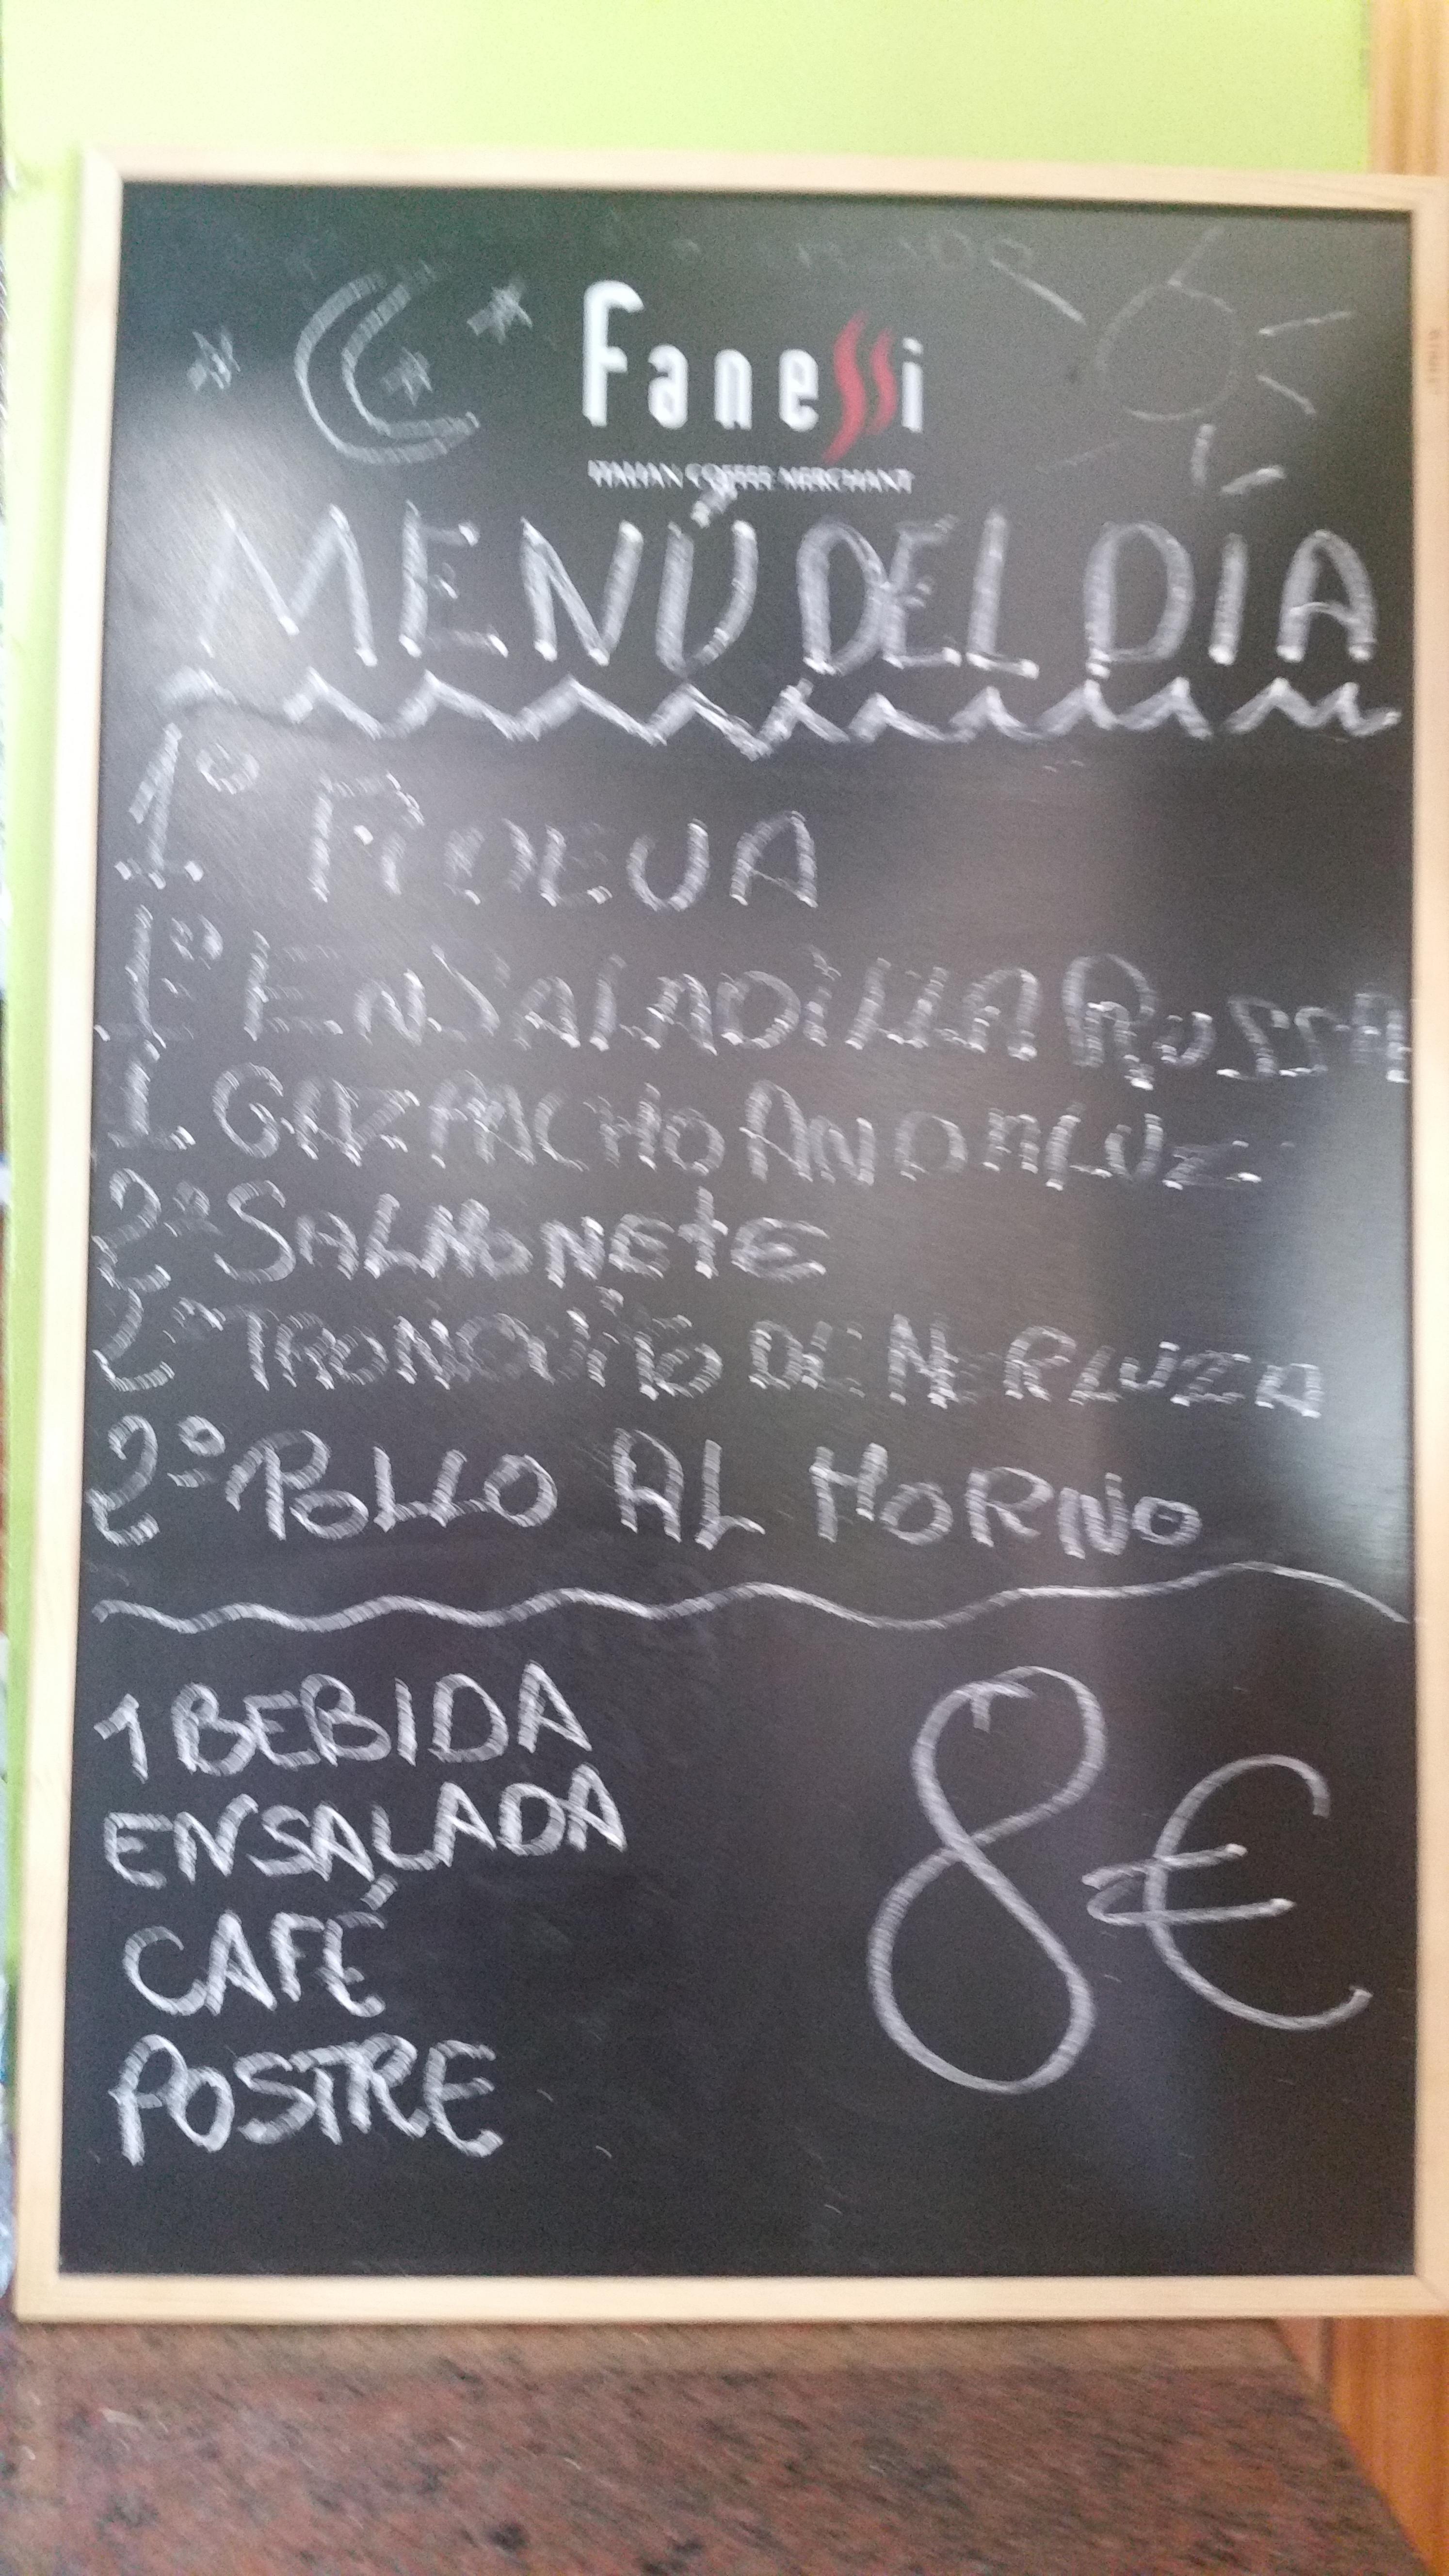 Fanessi
ITALIAN COFFEE MERCHANT
MENÚ DEL DÍA
1º FIDEUA
1º ENSALADILLA RUSSA
1. GAZPACHO ANDALUZ
2º SALMONETE
2º TRONQUITO DE MERLUZA
2º POLLO AL HORNO
1 BEBIDA
ENSALADA
CAFÉ
POSTRE
8€